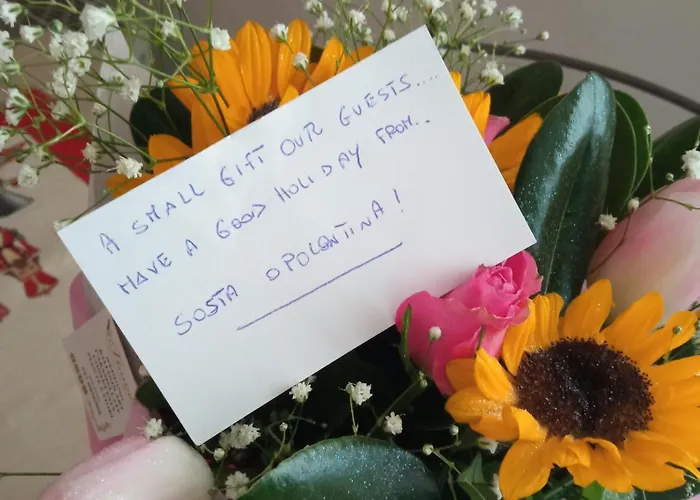 A SMALL GIFT OUR GUESTS....
HAVE A GOOD HOLIDAY FROM..
SOSTA OPOLENTINA!